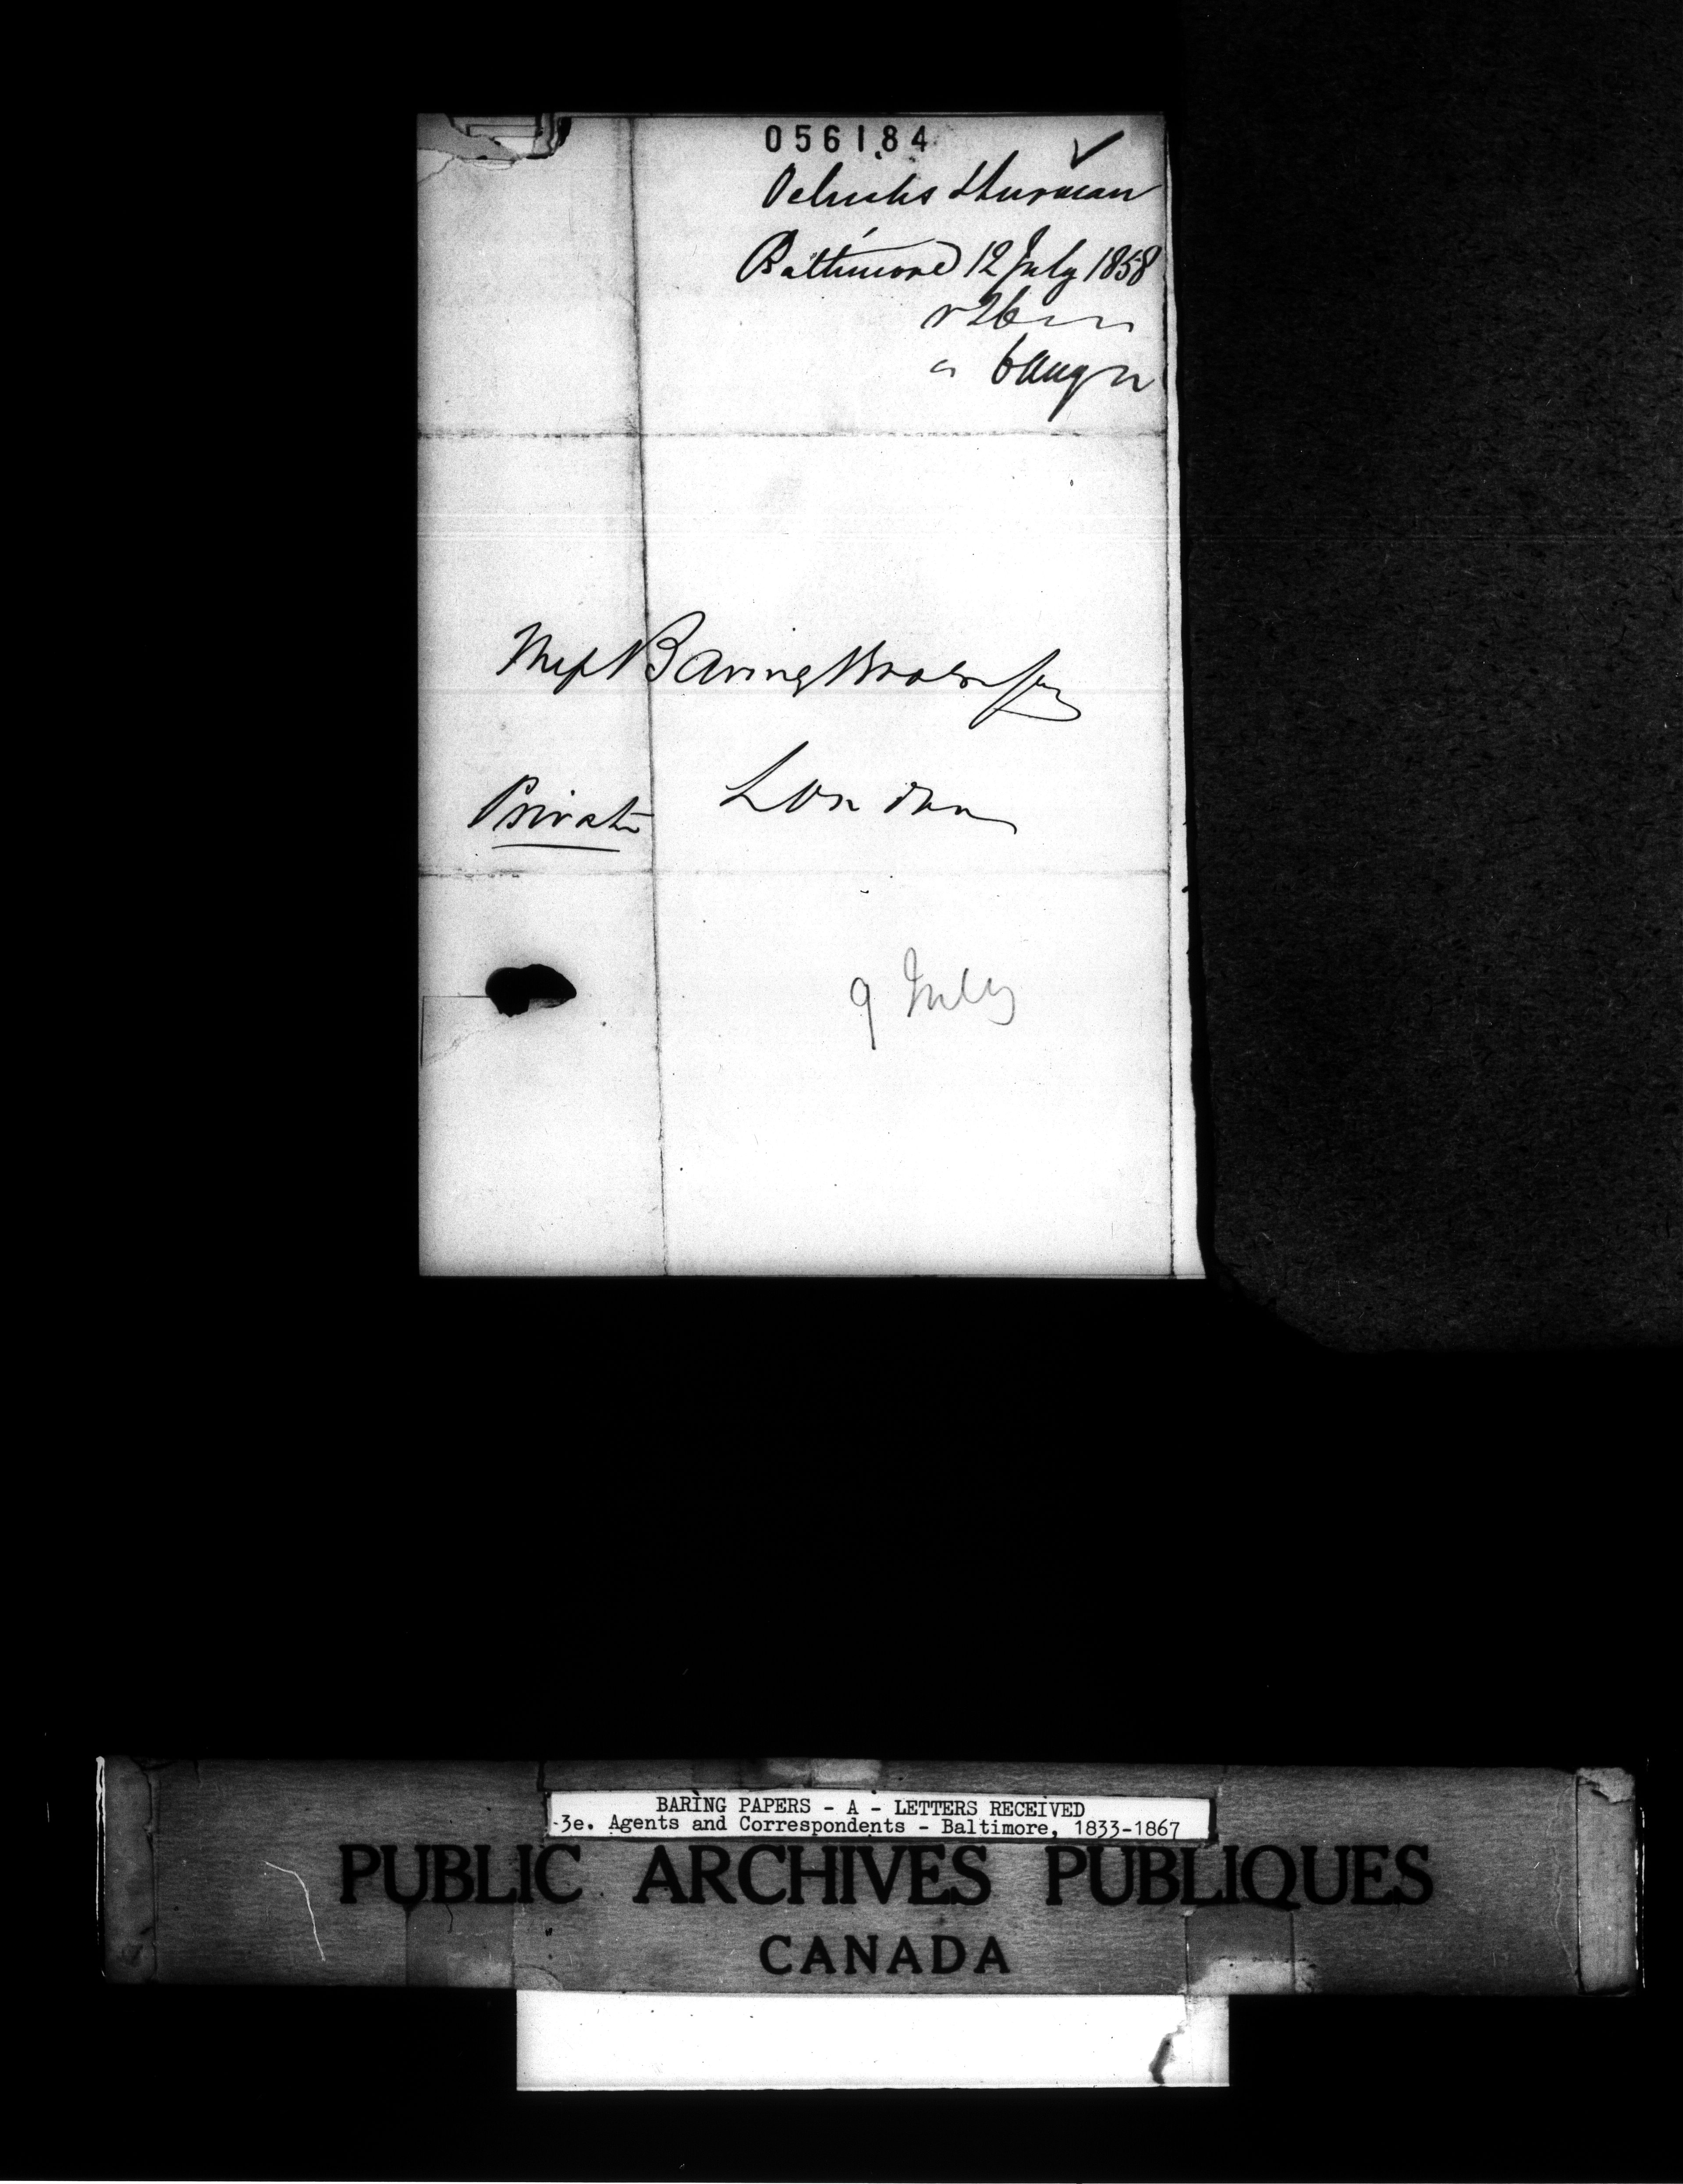 056184
Oelrichs & Lurman
Baltimore 12 July 1858
r 26
a 6 Aug
Mess Baring Brothers
London
Private
9 July
BARING PAPERS - A - LETTERS RECEIVED
3e. Agents and Correspondents - Baltimore, 1833-1867
PUBLIC ARCHIVES PUBLIQUES
CANADA